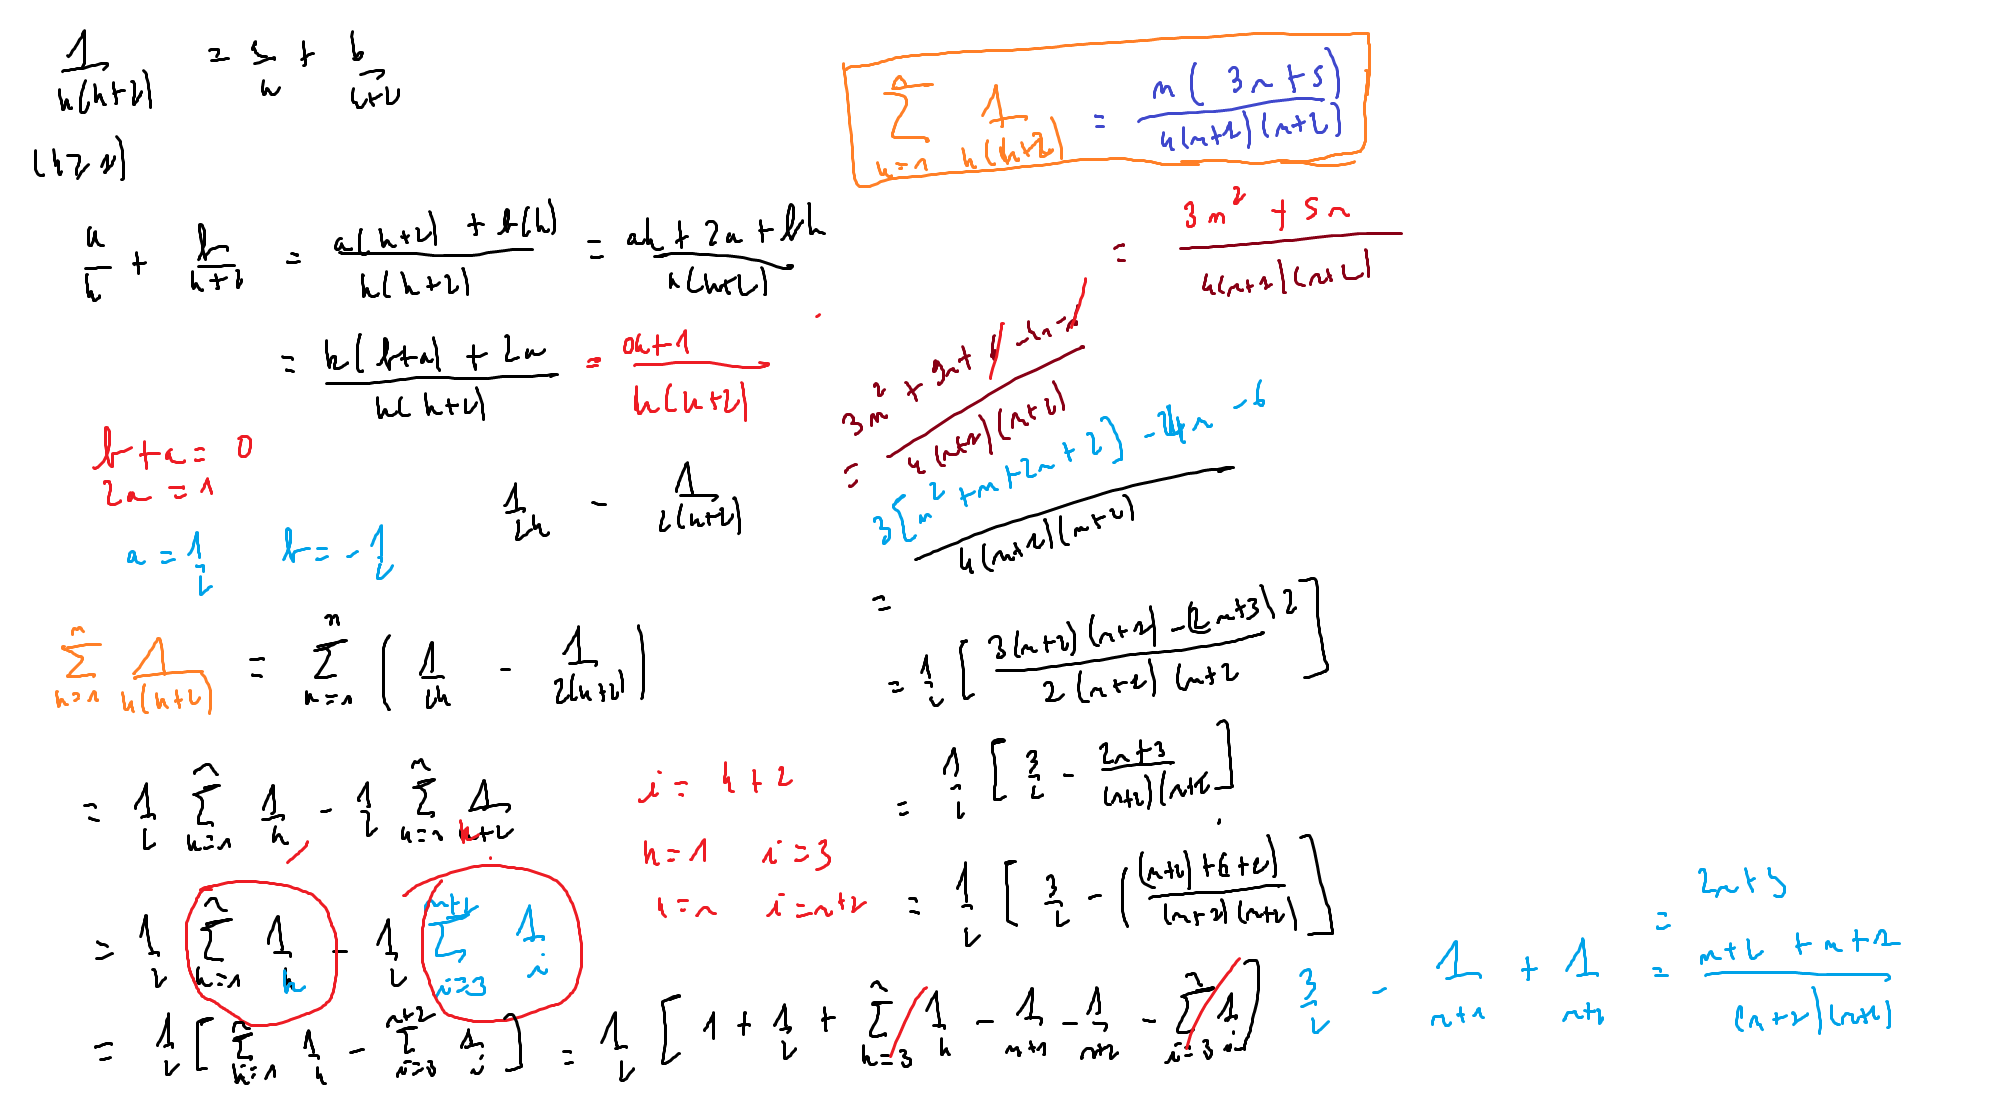 1/(k(k+2)) = a/k + b/(k+2)
(k≥1)
a/k + b/(k+2) = (a(k+2) + b(k))/(k(k+2)) = (ak + 2a + bk)/(k(k+2))
= (k(b+a) + 2a)/(k(k+2)) = (0k+1)/(k(k+2))
b+a = 0
2a = 1
a = 1/2 b = -1/2
1/(2k) - 1/(2(k+2))
∑_{k=1}^{n} 1/(k(k+2)) = ∑_{k=1}^{n} ( 1/(2k) - 1/(2(k+2)) )
= 1/2 ∑_{k=1}^{n} 1/k - 1/2 ∑_{k=1}^{n} 1/(k+2)
i = k+2
k=1 i=3
k=n i=n+2
= 1/2 ∑_{k=1}^{n} 1/k - 1/2 ∑_{i=3}^{n+2} 1/i
= 1/2 [ ∑_{k=1}^{n} 1/k - ∑_{i=3}^{n+2} 1/i ] = 1/2 [ 1 + 1/2 + ∑_{k=3}^{n} 1/k - 1/(n+1) - 1/(n+2) - ∑_{i=3}^{n} 1/i ]
3/2 - 1/(n+1) + 1/(n+2) = (n+2 + n+1)/((n+1)(n+2))
= 2n+3
= 1/2 [ 3/2 - (
= 1/2 [ 3/2 - (2n+3)/((n+1)(n+2)) ]
= 1/2 [ (3(n+2)(n+1) - (2n+3)2)/(2(n+1)(n+2 ]
=
3[n² + n + 2n + 2] - 4n - 6/(4(n+1)(n+2))
= (3n² + 9n +
4(n+1)(n+2)
= (3n² + 5n)/(4(n+1)(n+2))
∑_{k=1}^{n} 1/(k(k+2)) = n(3n+5)/(4(n+1)(n+2))